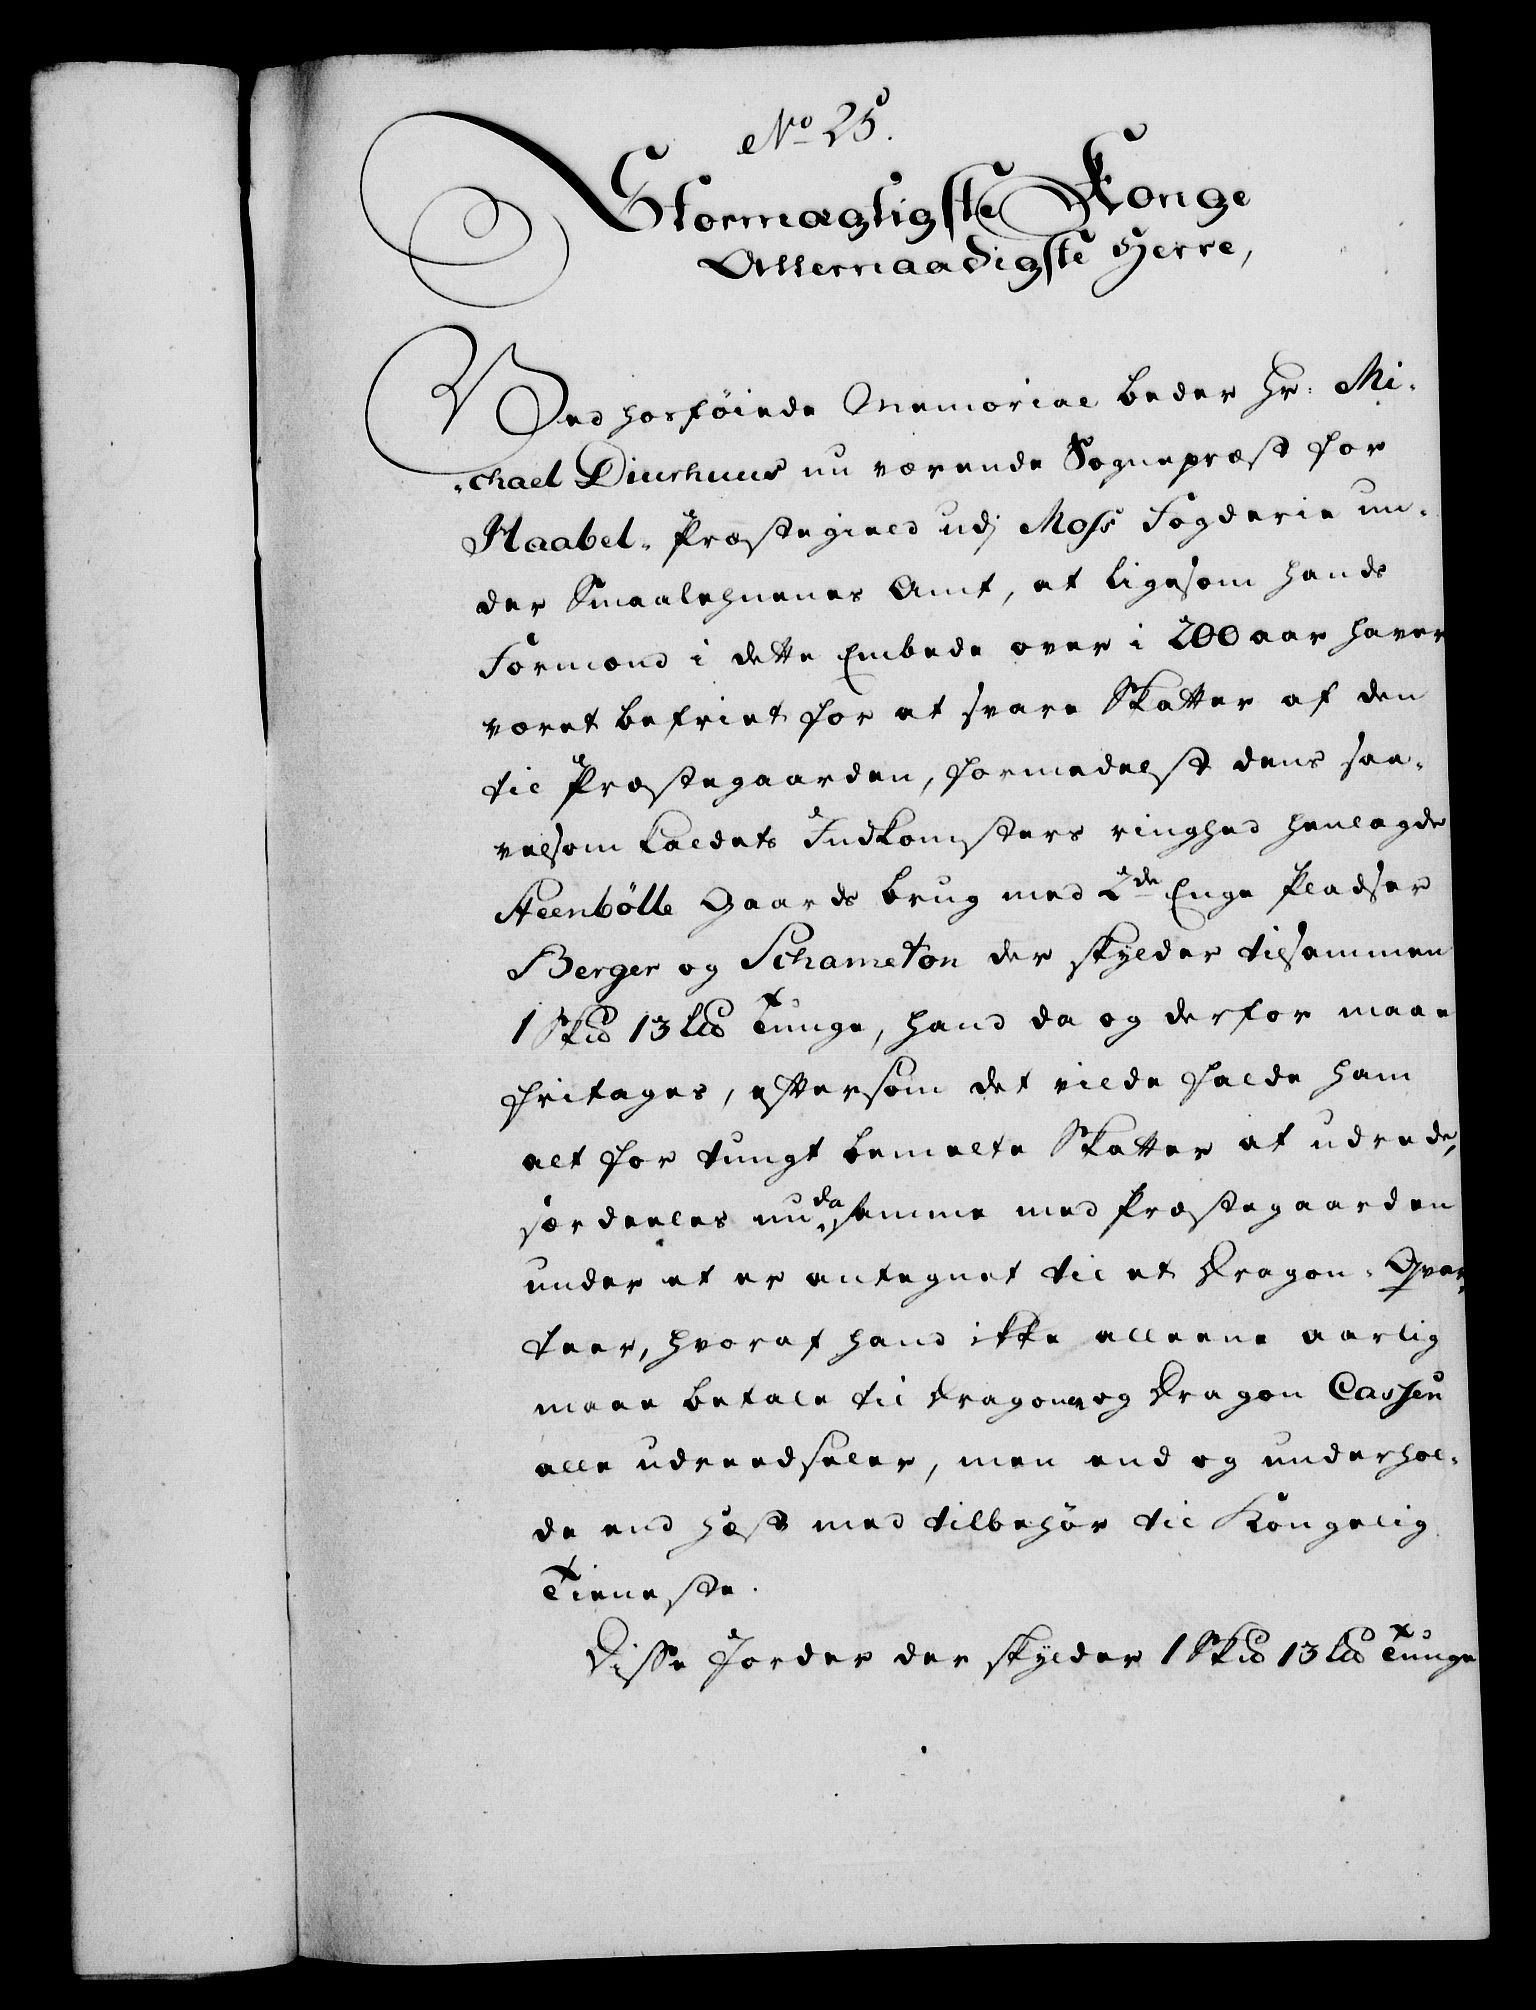 No 25.
Stormægtigste Konge
Allernaadigste Herre,
Ved hosföiede Memorial beder Hr: Mi-
-chael Diurhuus nu værende Sognepræst for
Haabel- Præstegield udj Moss Fogderie un-
der Smaalehnenes Amt, at ligesom hands
Formænd i dette Embede over i 200 aar haver
været befriet for at svare Skatter af den
til Præstegaarden, formedelst dens saa-
velsom Kaldets Indkomsters ringhed henlagde
Steenbölle Gaards brug med 2de Enge Pladser
Berger og Schameton der skylder tilsammen
1 Sk℔ 13 L℔ Tunge, hand da og derfor maae
fritages, eftersom det vilde falde ham
alt for tungt bemelte Skatter at udrede,
særdeeles nu da samme med Præstegaarden
under et er antegnet til et Dragon- Qvar-
teer, hvoraf hand ikke alleene aarlig
maae betale til Dragonen og Dragon Cassen
alle udreedseler, men end og underhol-
de end Hæst med tilbehör til Kongelig
Tieneste.
Disse Jorder der skylder 1 Sk℔ 13 L℔ Tunge